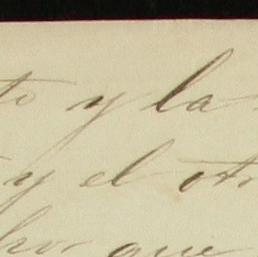 to y la
y el otr
hor que